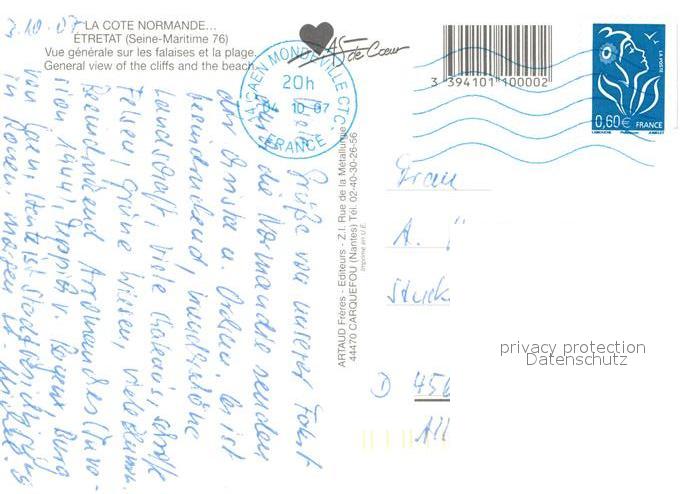 3.10.07
LA COTE NORMANDE...
ETRETAT (Seine-Maritime 76)
Vue générale sur les falaises et la plage.
General view of the cliffs and the beach.
AS de Cœur
3 394101 100002
CAEN MONDEVILLE CTC
20h
04 10 07
FRANCE
LA POSTE
0,60€ FRANCE
ARTAUD Frères - Editeurs - Z.I. Rue de la Métallurgie
44470 CARQUEFOU (Nantes) Tél. 02-40-30-26-56
Imprimé en U.E.
Grüße von unserer Fahrt
durch die Normandie senden
dir Christa u. Es ist
beeindruckend, wunderschöne
Landschaft, viele Chateaus, schroffe
Felsen, grüne Wiesen, viele Blumen.
Beeindruckend Arromanches (Inva-
sion 1944), Teppich v. Bayeux, Burg
von Caen, Heute ist Stadtbesichtigung
in Rouen, morgen
Frau
A.
D 456
privacy protection
Datenschutz